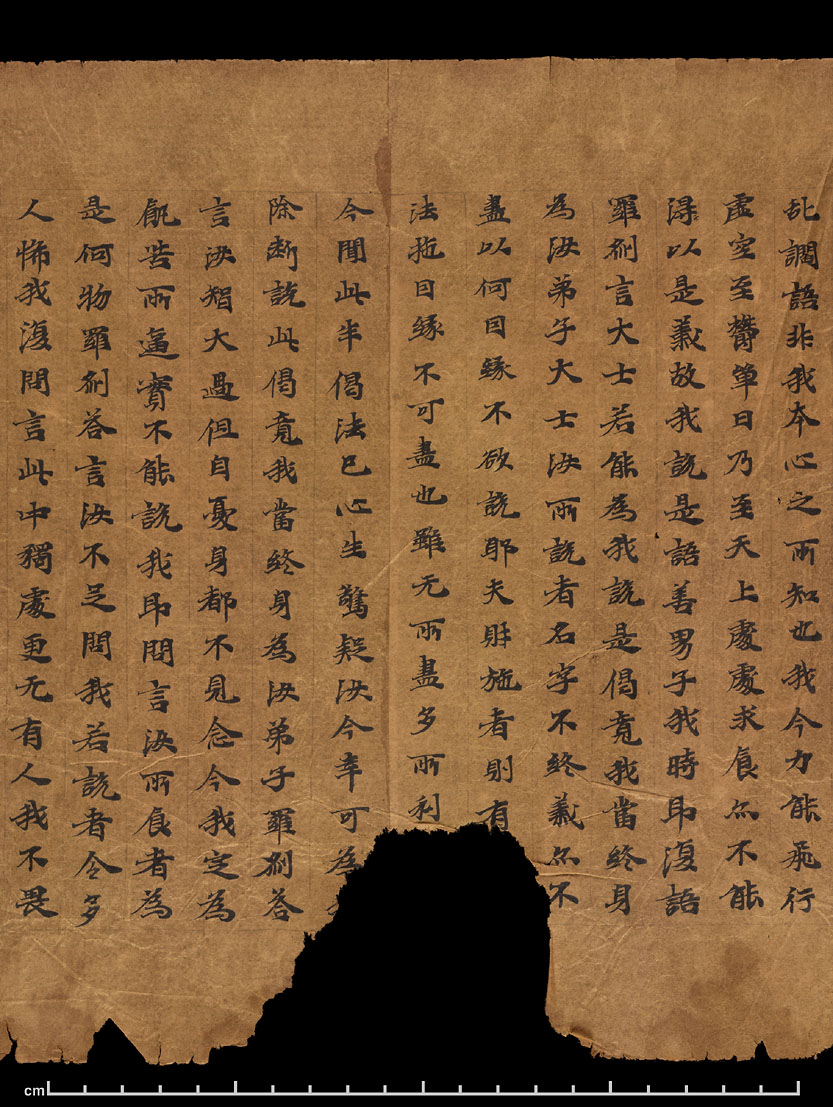 乱調語非我本心之所知也我今力能飛行
虛空至欝單曰乃至天上處處求食亦不能
得以是義故我說是語善男子我時即復語
羅剎言大士若能為我說是偈竟我當終身
為汝弟子大士汝所說者名字不終義亦不
盡以何因緣不欲說耶夫財施者則有
法施因緣不可盡也雖无所盡多所利
今聞此半偈法已心生驚疑汝今幸可為
除斷說此偈竟我當終身為汝弟子羅剎答
言汝智大過但自憂身都不見念今我定為
飢苦所逼實不能說我即問言汝所食者為
是何物羅剎答言汝不足問我若說者令多
人怖我復問言此中獨處更无有人我不畏